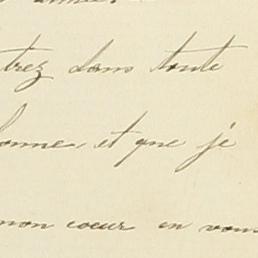 trez dans toute
bonne, et que je
mon coeur en vous